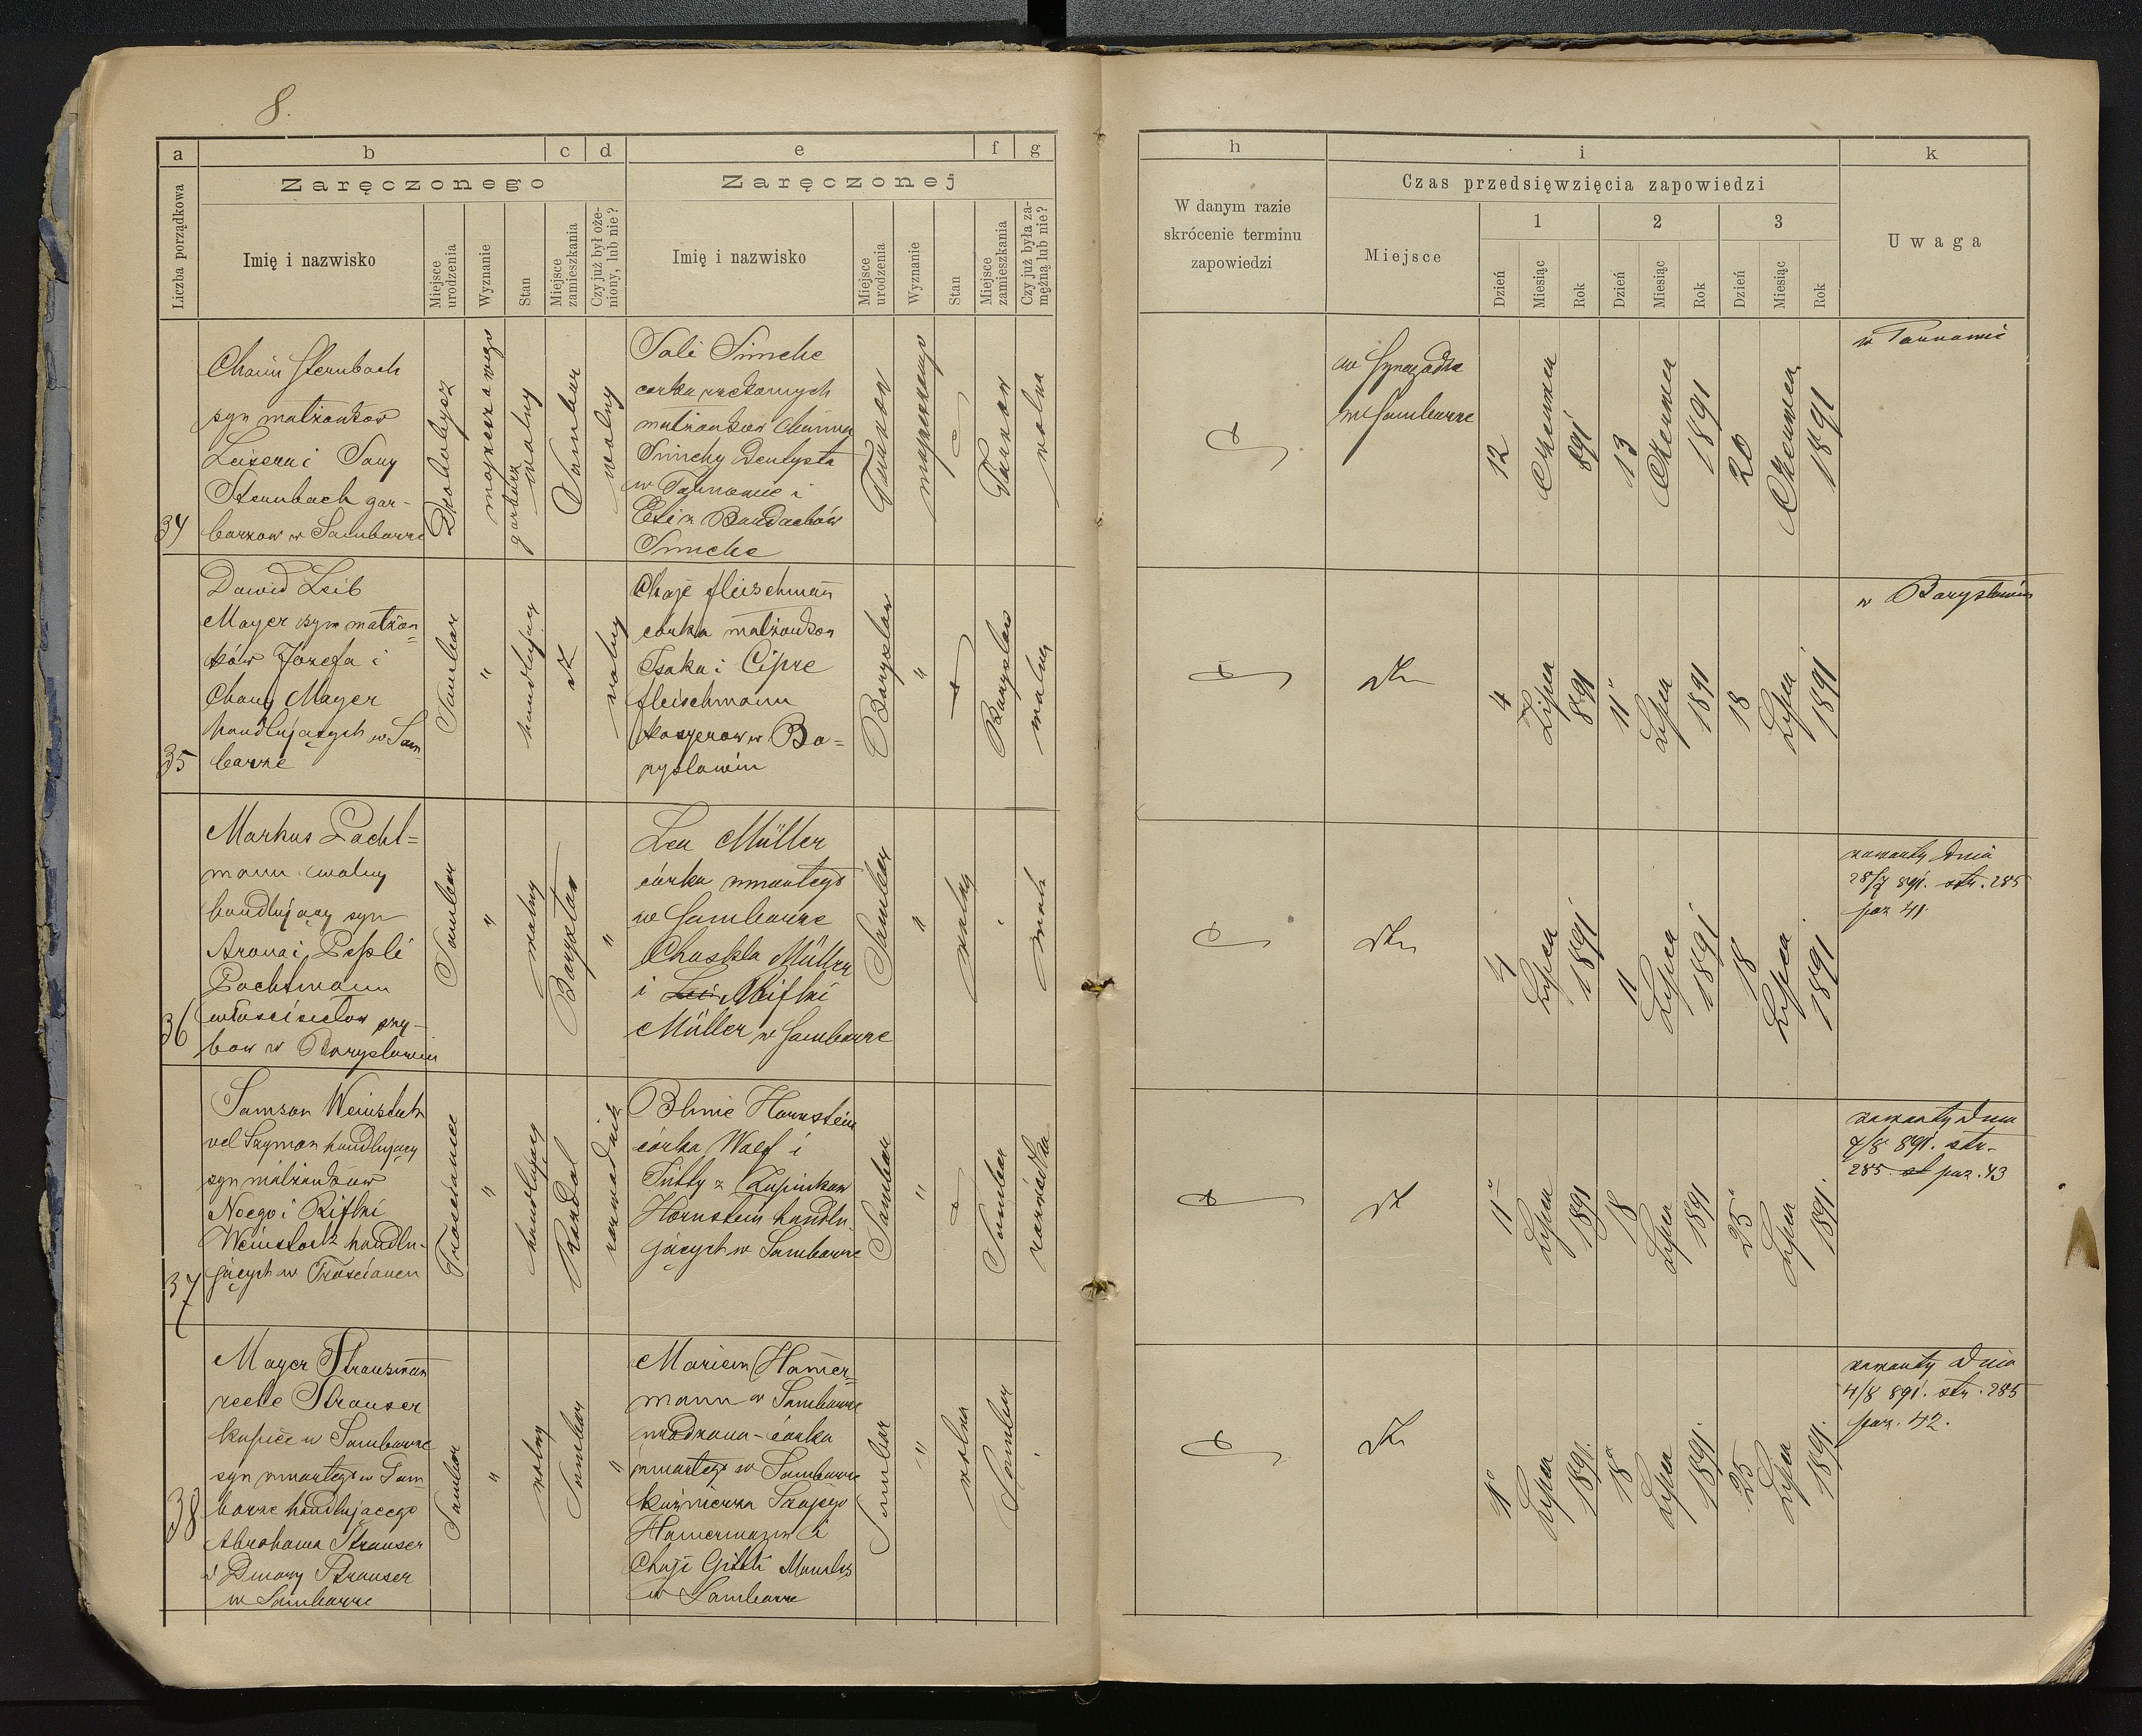 8.
a b c d e f g
Liczba porządkowa
Zaręczonego
Imię i nazwisko
Miejsce urodzenia
Wyznanie
Stan
Miejsce zamieszkania
Czy już był ożeniony, lub nie?
Zaręczonej
Imię i nazwisko
Miejsce urodzenia
Wyznanie
Stan
Miejsce zamieszkania
Czy już była zamężną lub nie?
h i k
W danym razie
skrócenie terminu
zapowiedzi
Czas przedsięwzięcia zapowiedzi
Miejsce
1 2 3
Dzień Miesiąc Rok Dzień Miesiąc Rok Dzień Miesiąc Rok
Uwaga
34
Chaim Sternbach
syn małżonków
Leisera i Sary
Sternbach gar-
barzow w Samborze
Drohobycz
mojżeszowego
garbarz
wolny
Sambor
wolny
Sali Simche
corka
małżonkow
Simchy Dentysta
w Tarnowie i
Simche
Tarnow
mojżeszowego
Tarnow
wolna
w Synagodze
w Samborze
12 Czerwca 891
13 Czerwca 1891
20 Czerwca 1891
w Tarnowie
35
Dawid Leib
Mayer syn małżon=
ków Józefa i
Chany Mayer
handlujących w Sam
borze
Sambor
"
handlujący
wolny
Chaje Fleischmann
córka małżonkow
Isaka i Cipre
Fleischmann
w Bo=
rysławiu
Borysław
"
Borysław
wolna
4 Lipca 891
11 Lipca 1891
18 Lipca 1891
w Borysławiu
36
Markus Pacht=
mann wolny
handlujący syn
Arona i Pessli
Pachtmann
właścicielow szy-
bow w Borysławiu
Sambor
"
wolny
Borysław
"
Lea Müller
córka zmarłego
w Samborze
Chaskla Müller
i Rifki
Müller w Samborze
Sambor
"
wolna
4 Lipca 1891
11 Lipca 1891
18 Lipca 1891
zawarty dnia
28/7 891. str. 285
poz 41.
37
Samson Weinstock
vel Szymon handlujący
syn małżonków
Noego i Rifki
Weinstock handlu-
jących w Trościancu
"
handlujący
Hornstein
córka Wolf i
Hornstein handlu
jących w Samborze
Sambor
"
Sambor
11 Lipca 1891
18 Lipca 1891
25 Lipca 1891.
zawarty dnia
4/8 891. str.
285 poz. 43
38
Mayer Strausmann
recte Strauser
kupiec w Samborze
syn zmarłego w Sam
borze handlującego
Abrahama Strauser
i Dwory Strauser
w Samborze
Sambor
"
wolny
Sambor
"
Mariem Hamer=
mann w Samborze
urodzona - córka
zmarłego w Samborze
kuśnierza
Hamermann i
w Samborze
Sambor
"
wolna
Sambor
Lipca 1891.
18 Lipca 1891.
25 Lipca 1891.
zawarty dnia
4/8 891. str. 285
poz. 42.